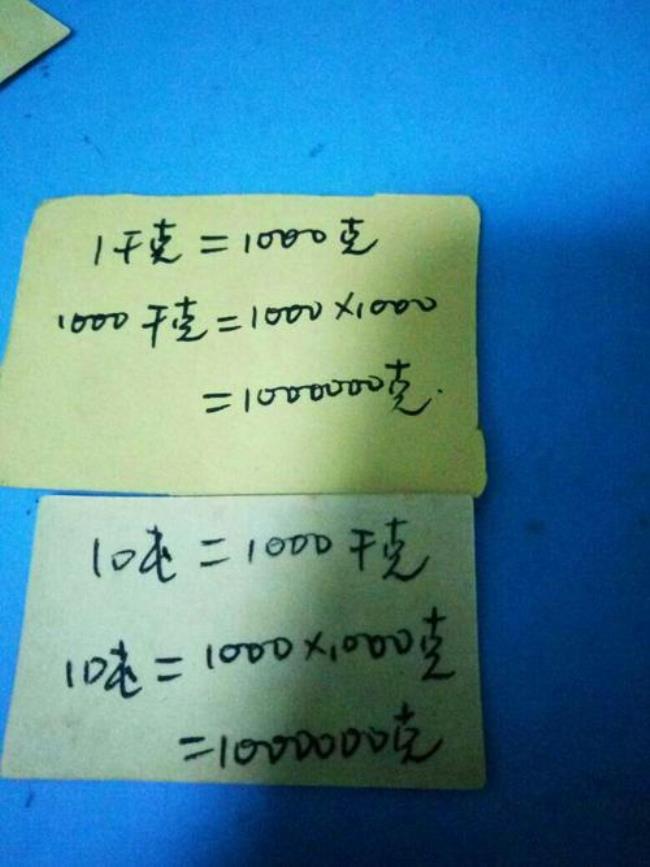 1千克=1000克
1000千克=1000×1000
=1000000克.
1吨=1000千克
1吨=1000×1000克
=1000000克